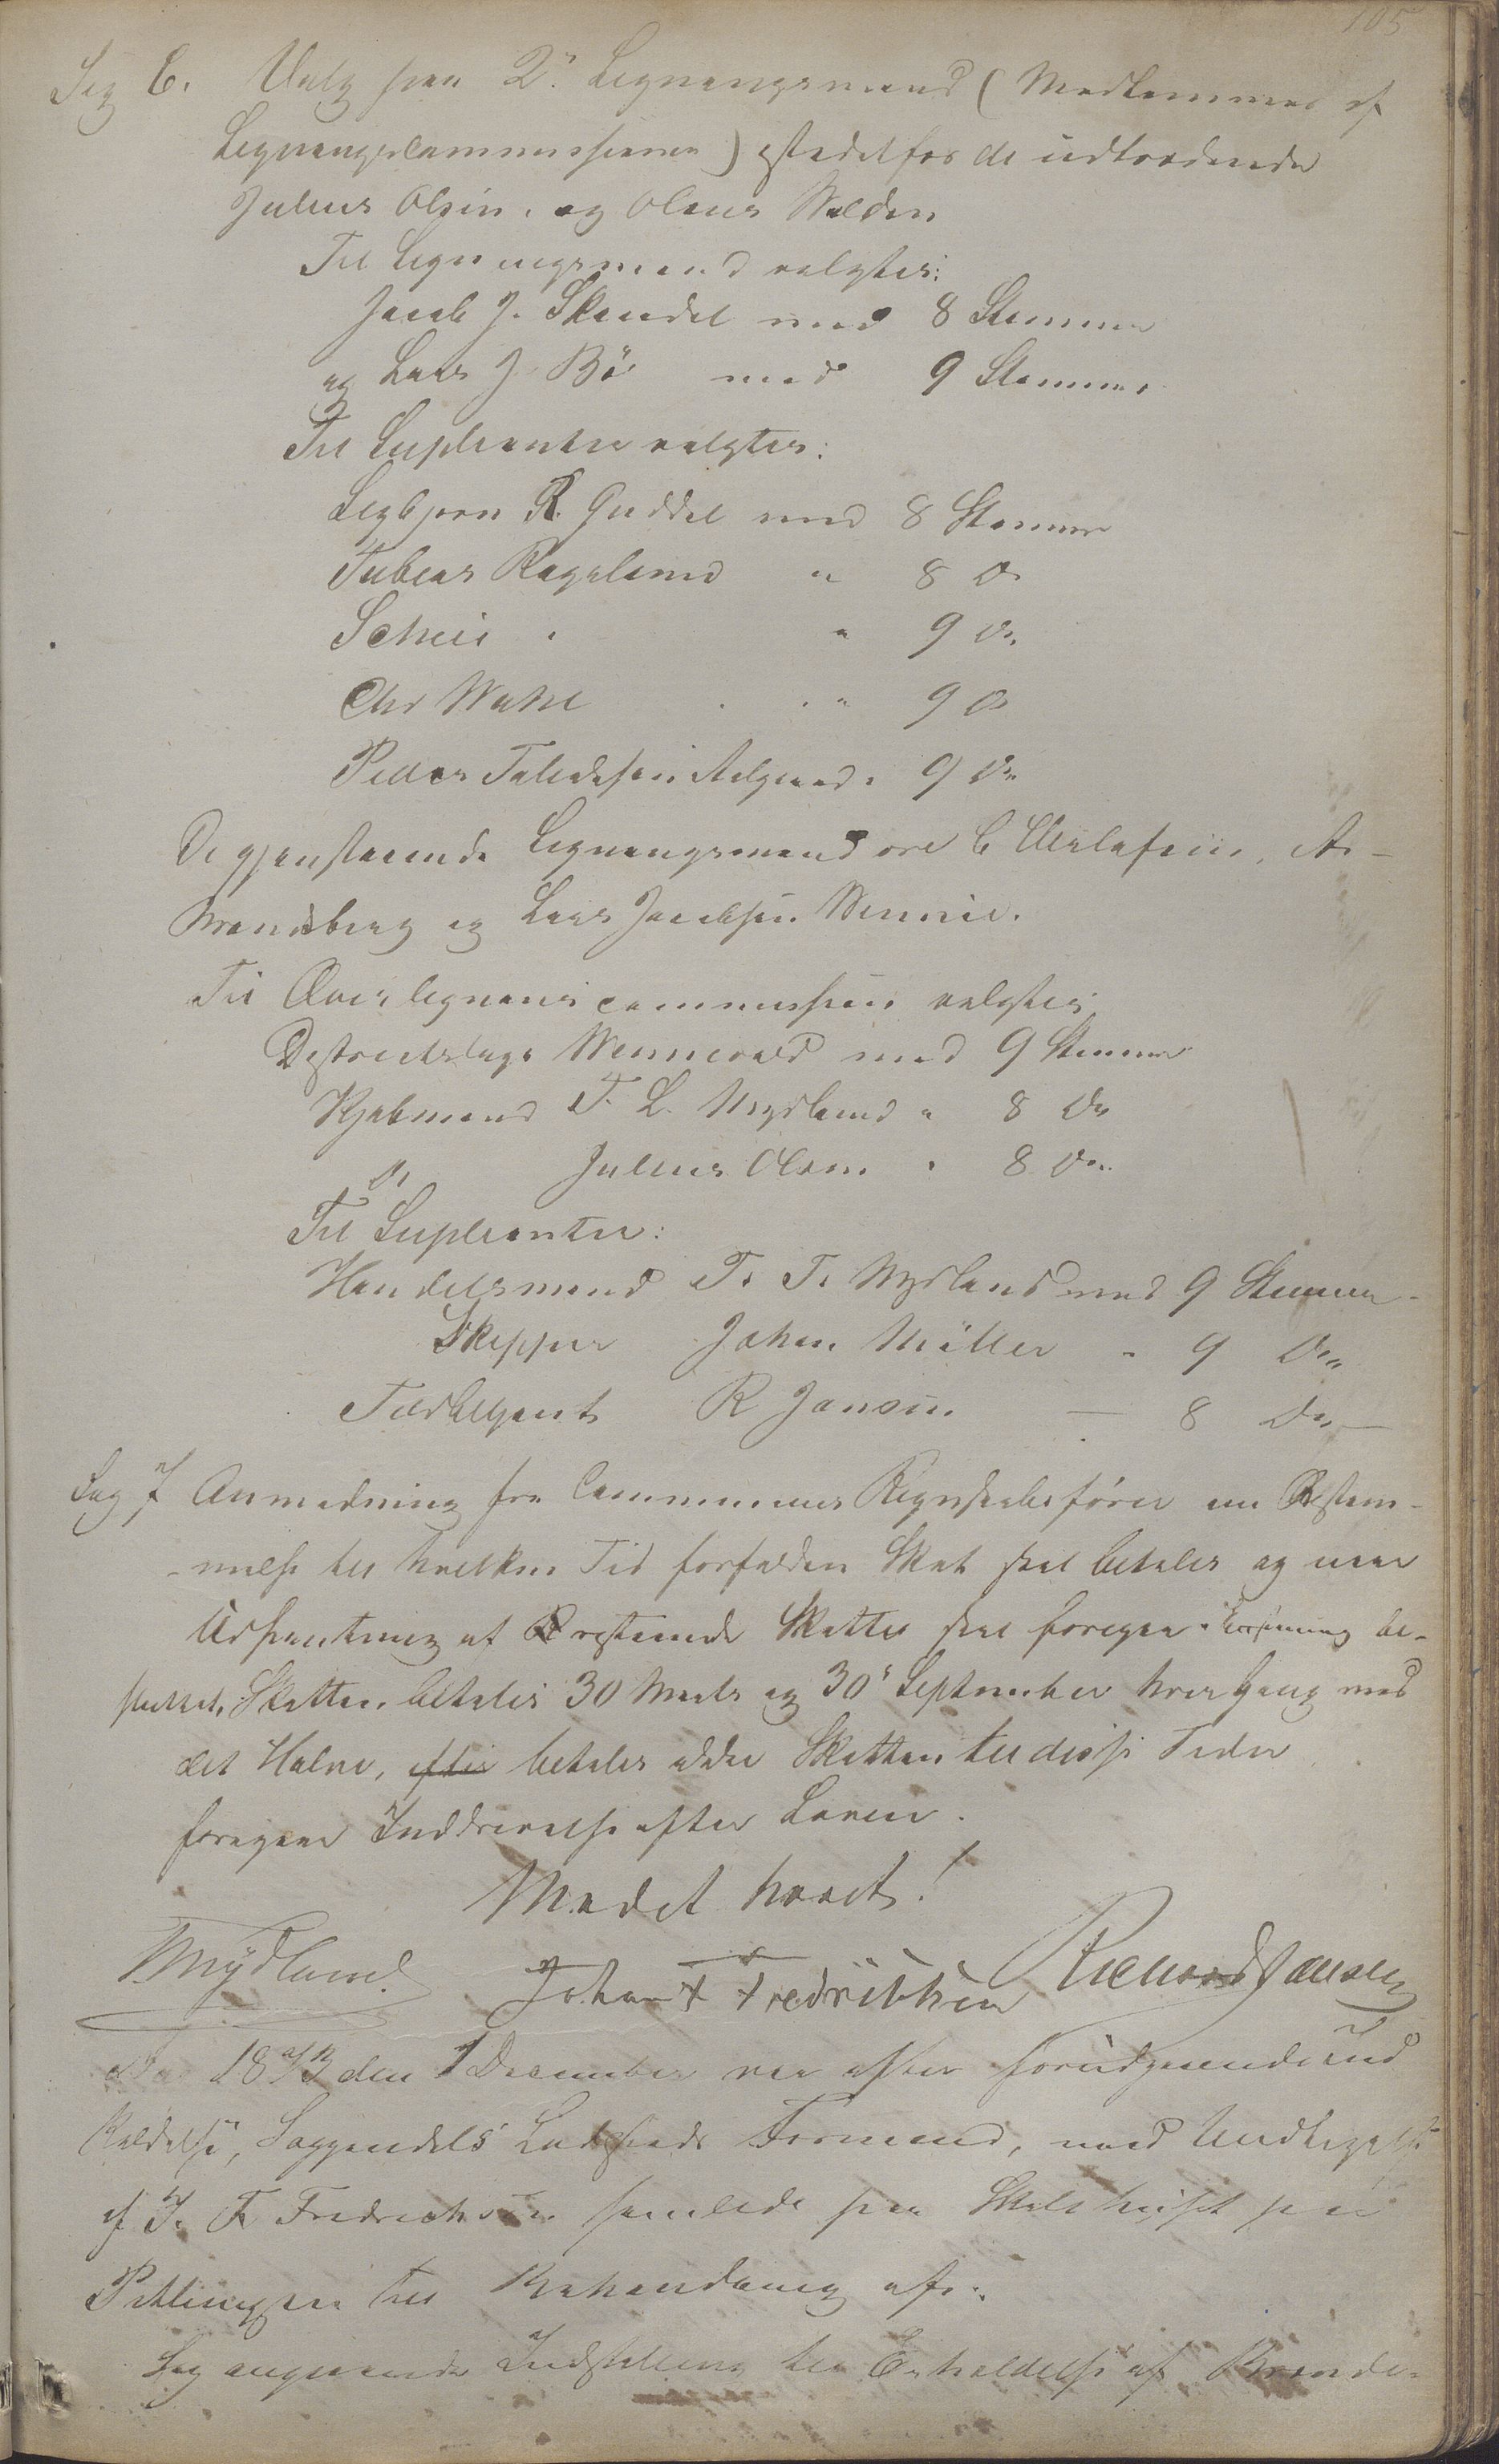 105
Sag 6. Valg paa 2de Ligningsmænd (Medlemmer af
Ligningscommissionen) istedetfor de udtrædende
Julius Olsen, og Olaus Walden
Til Ligningsmænd valgtes:
Jacob J. Skandal med 8 Stemmer
og Lars J. Bö med 9 Stemmer
Til Suplianter valgtes:
Sigbjørn R. Guddal med 8 Stemmer
Tobias Rageland " 8 Do
Scheie " 9 Do
Chr Wahl " 9 Do
Peder Aalgaard " 9 Do
De gjenstaaende Ligningsmænd ere C. A.
og Lars Jacobsen
Til Overligningscommission valgtes
Districtslæge Wennevold med 9 Stemmer
Kjøbmand T. L. Mydland " 8 Do
Do Julius Olsen " 8 Do
Til Suplianter:
Handelsmand T. T. Mydland med 9 Stemmer
Skipper Johan Müller " 9 Do
R Jansen — 8 Do
Sag 7 Anmodning fra Communens Regnskabsfører om Bestem-
-melse til hvilken Tid forfalden Skat skal betales og naar
Udpantning af resterende Skatter skal foregaa.
Skatten betales 30 Marts og 30' September hver Gang med
det Halve, efter betales ikke Skatten til disse Tider
foregaar Inddrivelse efter Loven.
Mødet hævet!
TMydland Johan F Fredriksen Richard Jansen
Aar 1873 den 1 December var efter forudgaaende Ind
kaldelse, Soggendals Ladsteds Formænd, med Undtagelse
af J. F. Fredrichsen samlede paa Skolehuset paa
til Behandling af:
Sag angaaende Indstilling til Erholdelse af Brænde-